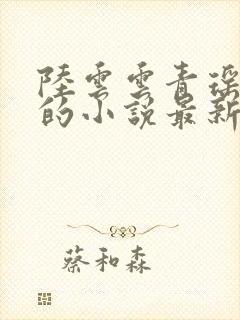 陸雲雲青瑤
的小說最新
蔡和森